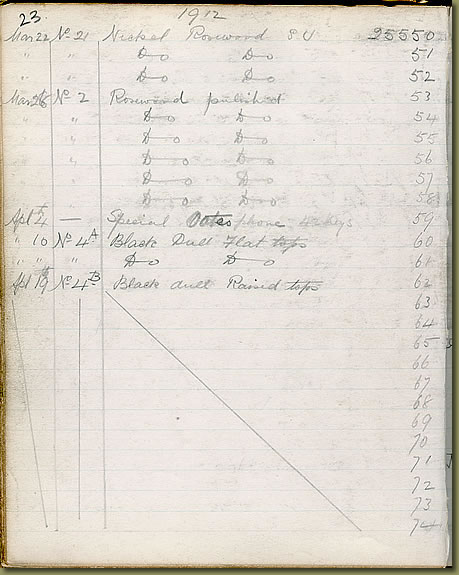 23. 1912
Mar 22 No 21 Nickel Rosewood 8 U 25550
" " Do Do 51
" " Do Do 52
Mar 28 No 2 Rosewood polished 53
" " Do Do 54
" " Do Do 55
" " Do Do 56
" " Do Do 57
" " Do Do 58
Apl 4 — Special phone 4 keys 59
" 10 No 4A Black Dull Flat tops 60
" " " " Do Do 61
Apl 19 No 4B Black dull Raised tops 62
63
64
65
66
67
68
69
70
71
72
73
74